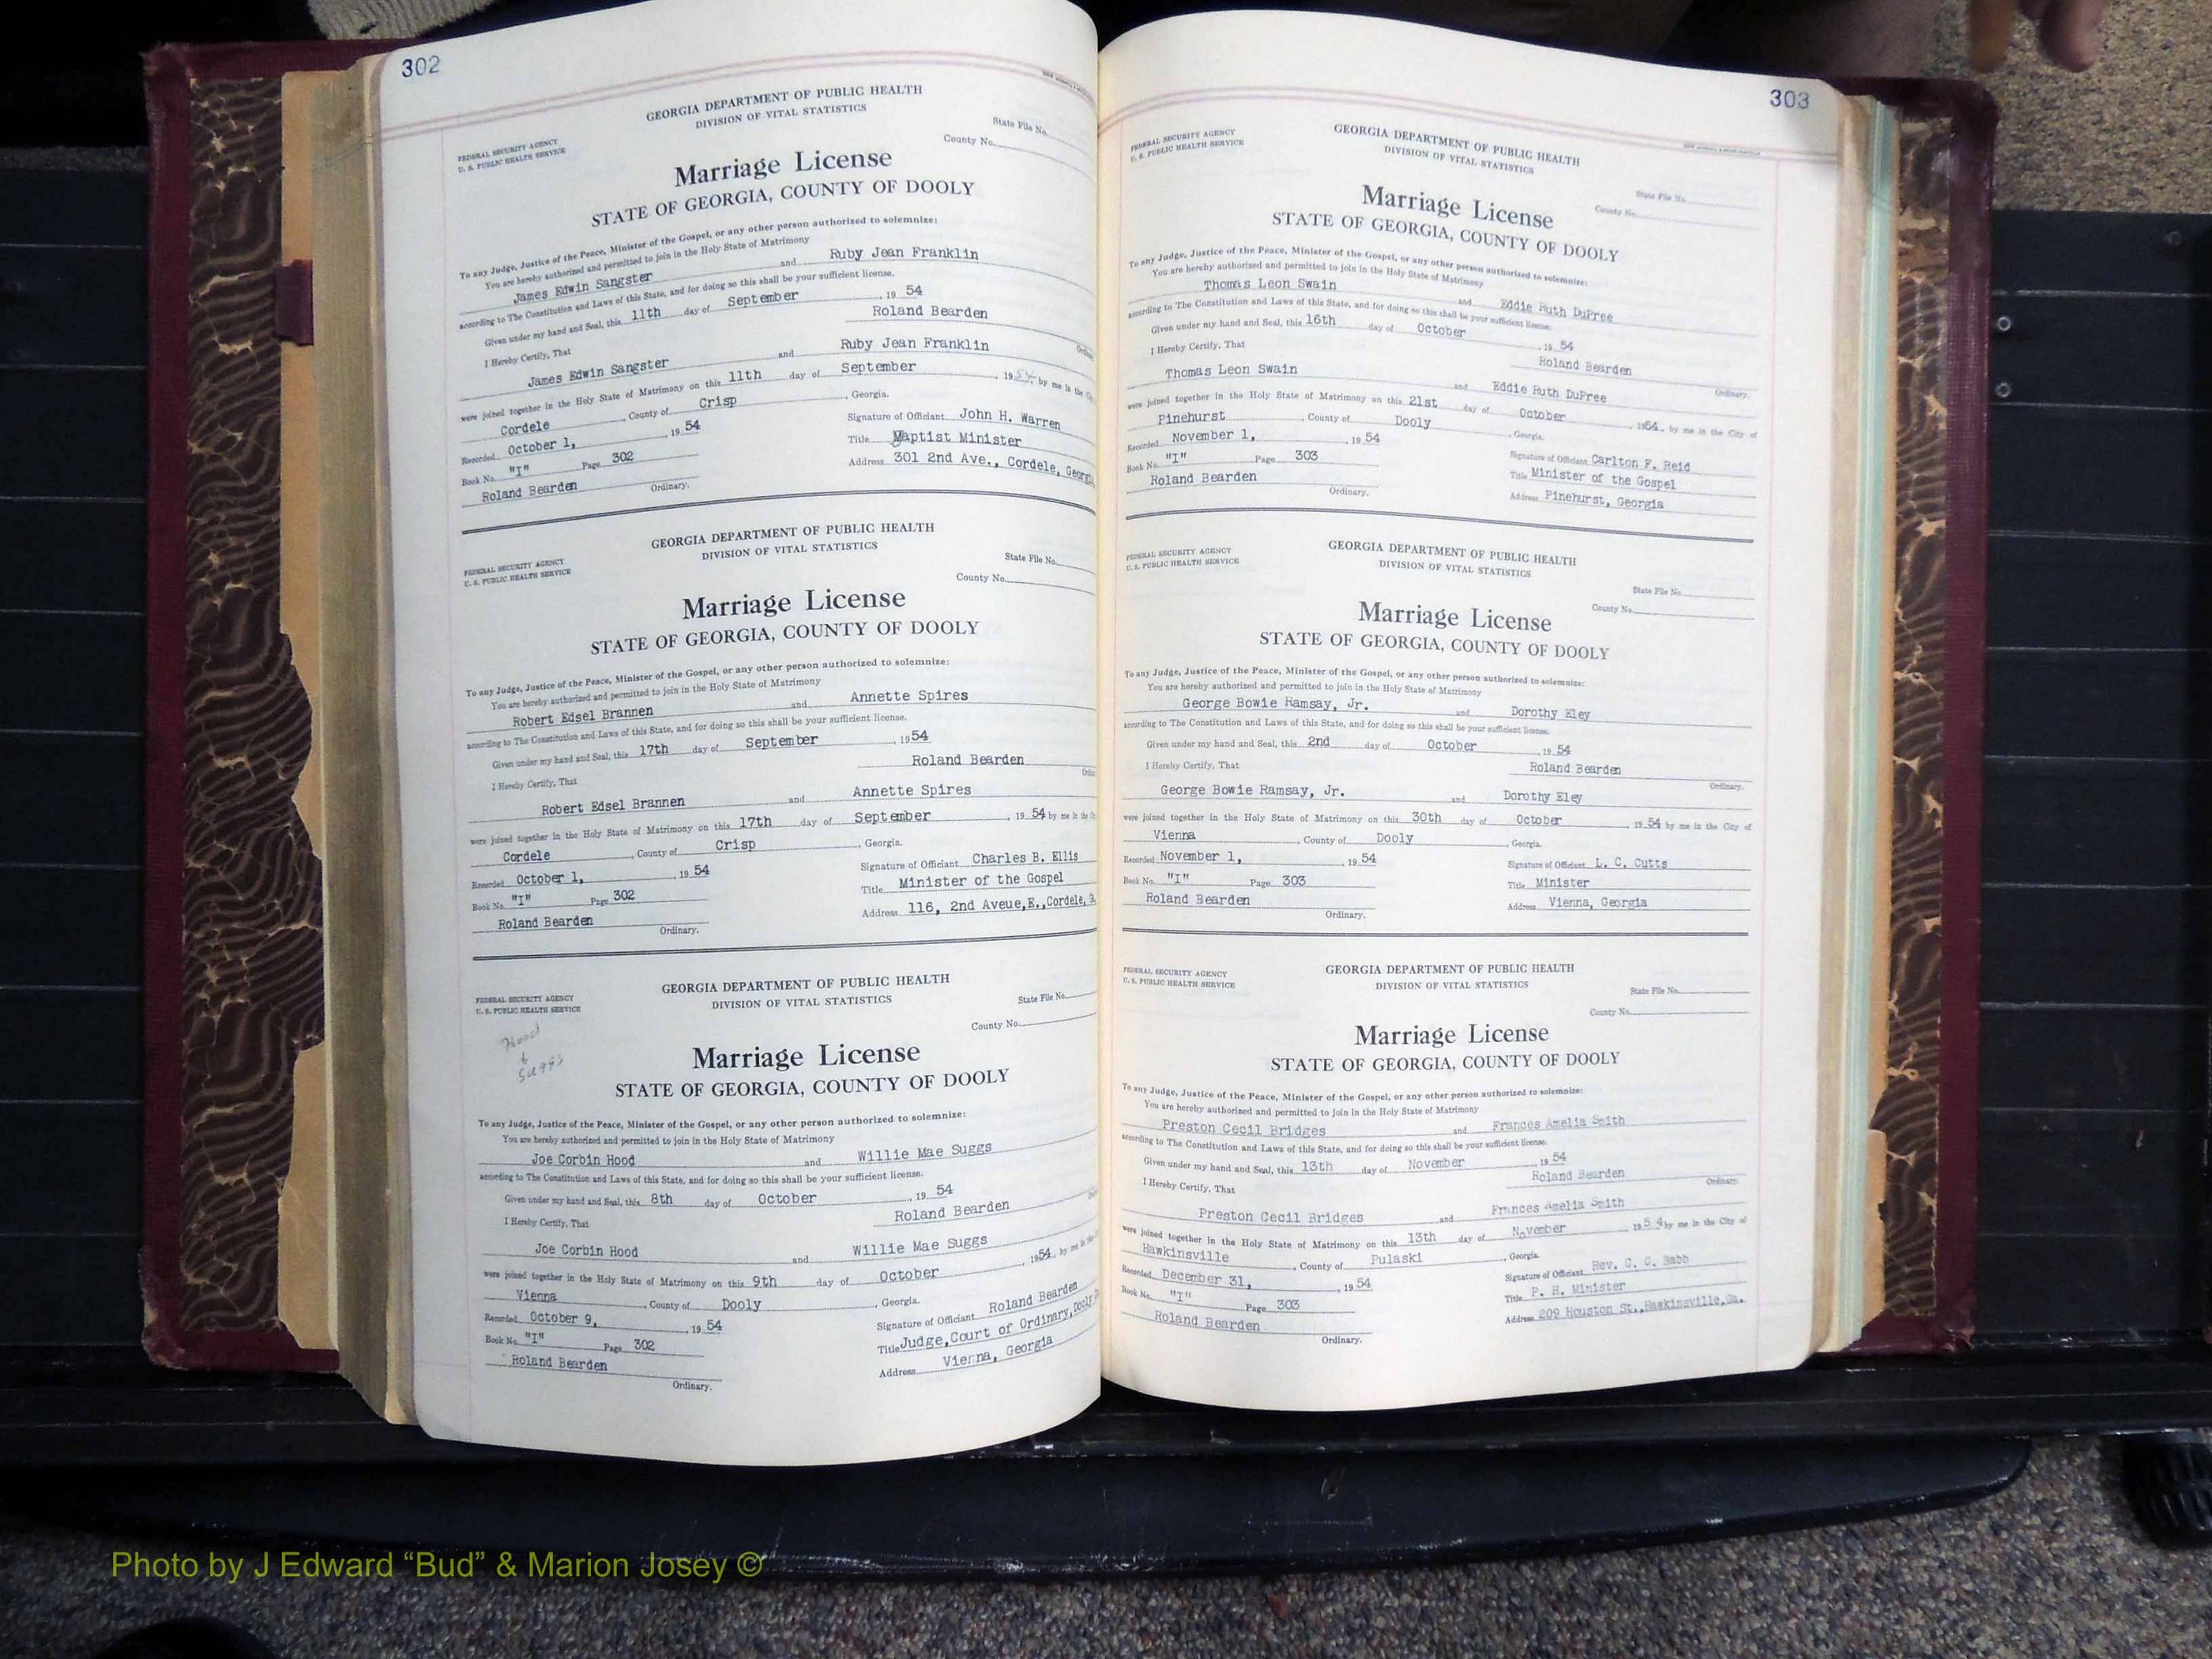 302
GEORGIA DEPARTMENT OF PUBLIC HEALTH
DIVISION OF VITAL STATISTICS
FEDERAL SECURITY AGENCY
U. S. PUBLIC HEALTH SERVICE
State File No.
County No.
Marriage License
STATE OF GEORGIA, COUNTY OF DOOLY
To any Judge, Justice of the Peace, Minister of the Gospel, or any other person authorized to solemnize:
You are hereby authorized and permitted to join in the Holy State of Matrimony
James Edwin Sangster and Ruby Jean Franklin
according to The Constitution and Laws of this State, and for doing so this shall be your sufficient license.
Given under my hand and Seal, this 11th day of September, 19 54
Roland Bearden
I Hereby Certify, That
James Edwin Sangster and Ruby Jean Franklin
were joined together in the Holy State of Matrimony on this 11th day of September, 1954, by me in the
Cordele, County of Crisp, Georgia.
Recorded October 1, 19 54
Signature of Officiant John H. Warren
Book No. "I" Page 302
Title Baptist Minister
Roland Bearden
Address 301 2nd Ave., Cordele, Georgia
Ordinary.
GEORGIA DEPARTMENT OF PUBLIC HEALTH
DIVISION OF VITAL STATISTICS
FEDERAL SECURITY AGENCY
U. S. PUBLIC HEALTH SERVICE
State File No.
County No.
Marriage License
STATE OF GEORGIA, COUNTY OF DOOLY
To any Judge, Justice of the Peace, Minister of the Gospel, or any other person authorized to solemnize:
You are hereby authorized and permitted to join in the Holy State of Matrimony
Robert Edsel Brannen and Annette Spires
according to The Constitution and Laws of this State, and for doing so this shall be your sufficient license.
Given under my hand and Seal, this 17th day of September, 19 54
Roland Bearden
I Hereby Certify, That
Robert Edsel Brannen and Annette Spires
were joined together in the Holy State of Matrimony on this 17th day of September, 19 54 by me in the
Cordele, County of Crisp, Georgia.
Recorded October 1, 19 54
Signature of Officiant Charles B. Ellis
Book No. "I" Page 302
Title Minister of the Gospel
Roland Bearden
Address 116, 2nd Aveue,E.,Cordele,
Ordinary.
GEORGIA DEPARTMENT OF PUBLIC HEALTH
DIVISION OF VITAL STATISTICS
FEDERAL SECURITY AGENCY
U. S. PUBLIC HEALTH SERVICE
State File No.
County No.
Hood
&
Suggs
Marriage License
STATE OF GEORGIA, COUNTY OF DOOLY
To any Judge, Justice of the Peace, Minister of the Gospel, or any other person authorized to solemnize:
You are hereby authorized and permitted to join in the Holy State of Matrimony
Joe Corbin Hood and Willie Mae Suggs
according to The Constitution and Laws of this State, and for doing so this shall be your sufficient license.
Given under my hand and Seal, this 8th day of October, 19 54
Roland Bearden
I Hereby Certify, That
Joe Corbin Hood and Willie Mae Suggs
were joined together in the Holy State of Matrimony on this 9th day of October, 1954, by me in the
Vienna, County of Dooly, Georgia.
Recorded October 9, 19 54
Signature of Officiant Roland Bearden
Book No. "I" Page 302
Title Judge, Court of Ordinary, Dooly
Roland Bearden
Address Vienna, Georgia
Ordinary.
303
FEDERAL SECURITY AGENCY
U. S. PUBLIC HEALTH SERVICE
GEORGIA DEPARTMENT OF PUBLIC HEALTH
DIVISION OF VITAL STATISTICS
State File No.
County No.
Marriage License
STATE OF GEORGIA, COUNTY OF DOOLY
To any Judge, Justice of the Peace, Minister of the Gospel, or any other person authorized to solemnize:
You are hereby authorized and permitted to join in the Holy State of Matrimony
Thomas Leon Swain and Eddie Ruth DuPree
according to The Constitution and Laws of this State, and for doing so this shall be your sufficient license.
Given under my hand and Seal, this 16th day of October, 19 54
Roland Bearden
I Hereby Certify, That
Ordinary.
Thomas Leon Swain and Eddie Ruth DuPree
were joined together in the Holy State of Matrimony on this 21st day of October, 1954, by me in the City of
Pinehurst, County of Dooly, Georgia.
Recorded November 1, 19 54
Signature of Officiant Carlton F. Reid
Book No. "I" Page 303
Title Minister of the Gospel
Roland Bearden
Address Pinehurst, Georgia
Ordinary.
FEDERAL SECURITY AGENCY
U. S. PUBLIC HEALTH SERVICE
GEORGIA DEPARTMENT OF PUBLIC HEALTH
DIVISION OF VITAL STATISTICS
State File No.
County No.
Marriage License
STATE OF GEORGIA, COUNTY OF DOOLY
To any Judge, Justice of the Peace, Minister of the Gospel, or any other person authorized to solemnize:
You are hereby authorized and permitted to join in the Holy State of Matrimony
George Bowie Ramsay, Jr. and Dorothy Eley
according to The Constitution and Laws of this State, and for doing so this shall be your sufficient license.
Given under my hand and Seal, this 2nd day of October, 19 54
I Hereby Certify, That
Roland Bearden
Ordinary.
George Bowie Ramsay, Jr. and Dorothy Eley
were joined together in the Holy State of Matrimony on this 30th day of October, 19 54 by me in the City of
Vienna, County of Dooly, Georgia.
Recorded November 1, 19 54
Signature of Officiant L. C. Cutts
Book No. "I" Page 303
Title Minister
Roland Bearden
Address Vienna, Georgia
Ordinary.
FEDERAL SECURITY AGENCY
U. S. PUBLIC HEALTH SERVICE
GEORGIA DEPARTMENT OF PUBLIC HEALTH
DIVISION OF VITAL STATISTICS
State File No.
County No.
Marriage License
STATE OF GEORGIA, COUNTY OF DOOLY
To any Judge, Justice of the Peace, Minister of the Gospel, or any other person authorized to solemnize:
You are hereby authorized and permitted to join in the Holy State of Matrimony
Preston Cecil Bridges and Frances Amelia Smith
according to The Constitution and Laws of this State, and for doing so this shall be your sufficient license.
Given under my hand and Seal, this 13th day of November, 19 54
I Hereby Certify, That
Roland Bearden
Ordinary.
Preston Cecil Bridges and Frances Amelia Smith
were joined together in the Holy State of Matrimony on this 13th day of November, 195 4 by me in the City of
Hawkinsville, County of Pulaski, Georgia.
Recorded December 31, 19 54
Signature of Officiant Rev. C. C. Babb
Book No. "I" Page 303
Title P. H. Minister
Roland Bearden
Address 209 Houston St.,Hawkinsville,Ga.
Ordinary.
Photo by J Edward “Bud” & Marion Josey ©